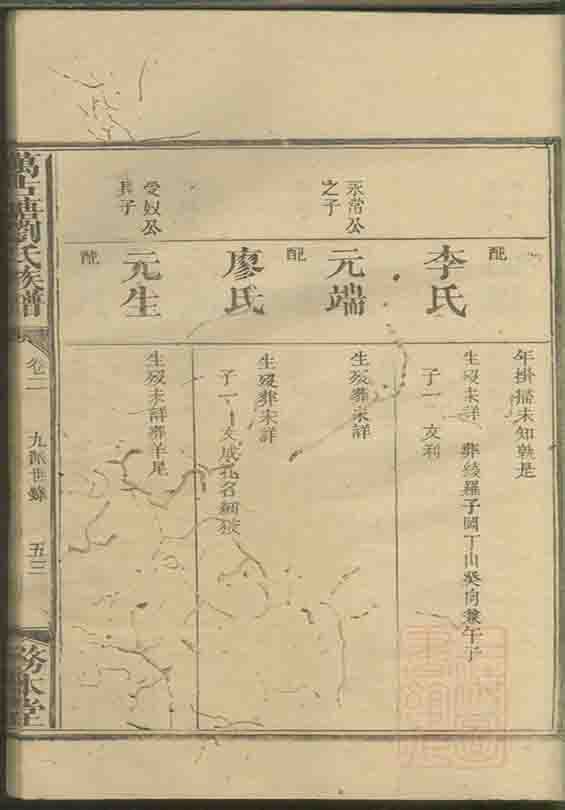 年掛掃未知孰是
配
李氏
生歿未詳 葬綾羅子岡丁山癸向兼午子
子一 文利
永常公
之子
元端
生歿葬未詳
配
廖氏
生歿葬未詳
子一 文成乳名
受奴公
長子
元生
生歿未詳葬羊尾
配
萬古塘劉氏族譜
卷二
九派世錄
五三
務本堂